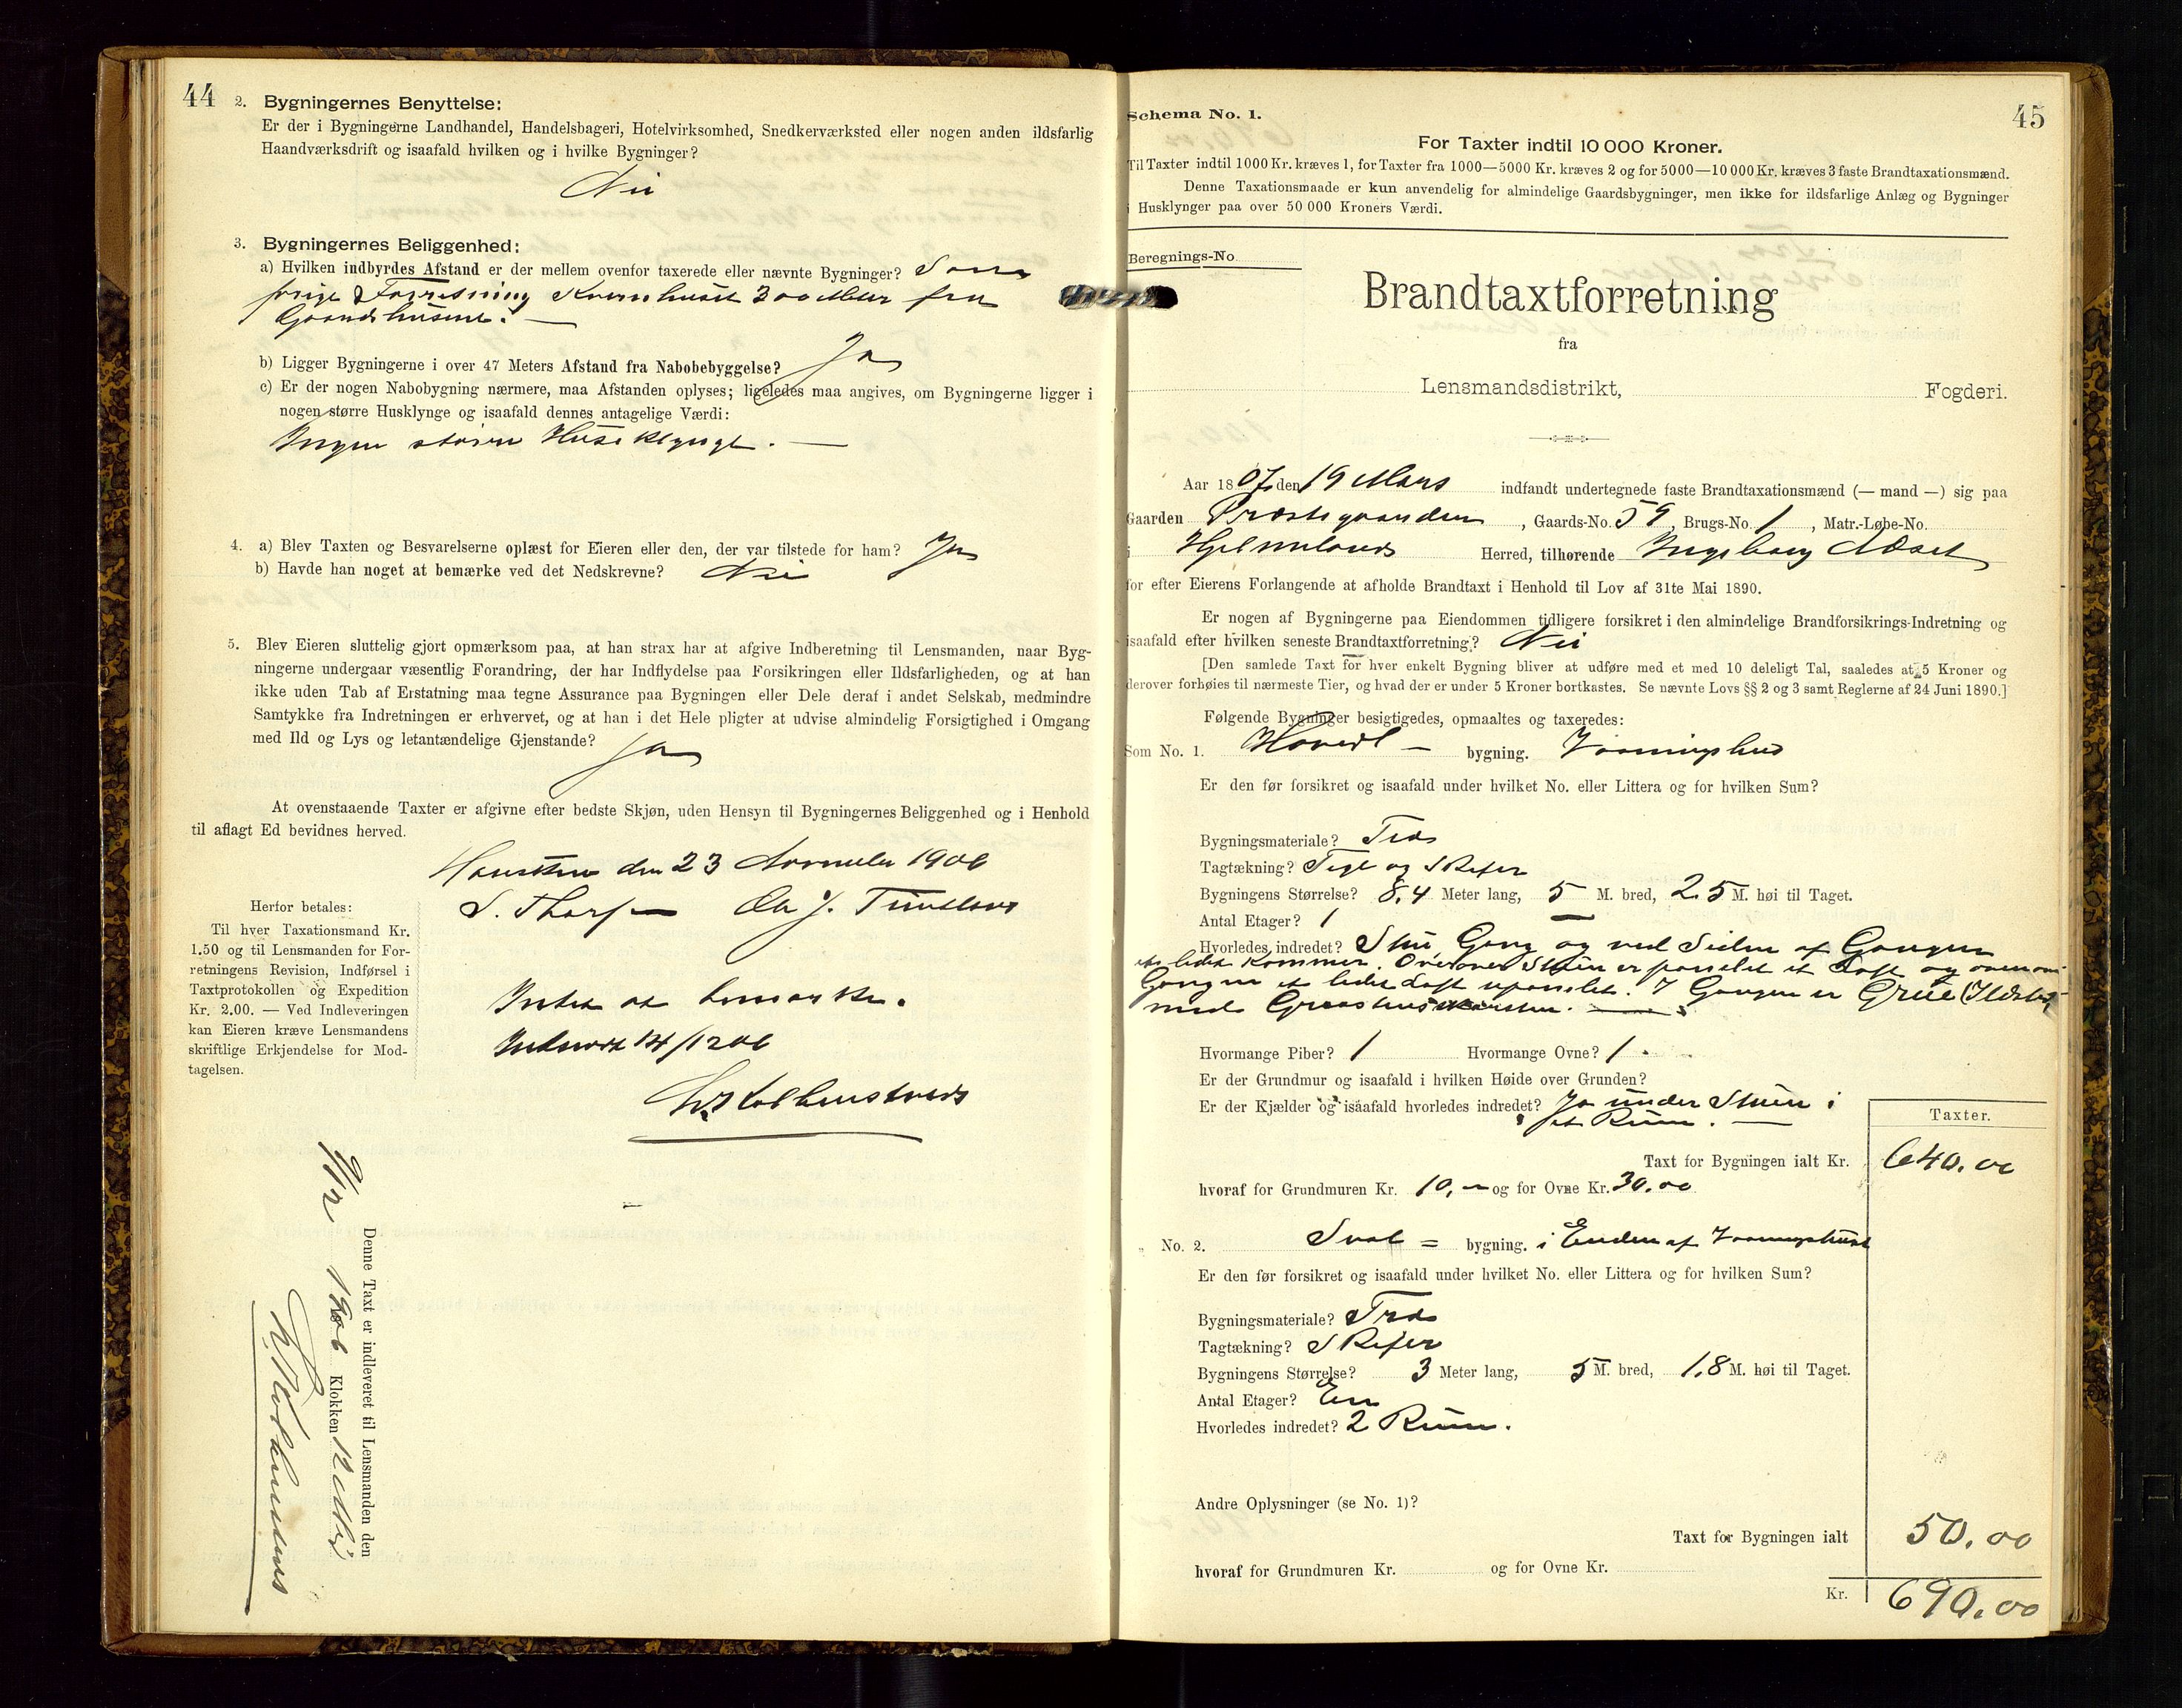 44
2. Bygningernes Benyttelse:
Er der i Bygningerne Landhandel, Handelsbageri, Hotelvirksomhed, Snedkerværksted eller nogen anden ildsfarlig
Haandværksdrift og isaafald hvilken og i hvilke Bygninger?
Nei
3. Bygningernes Beliggenhed:
a) Hvilken indbyrdes Afstand er der mellem ovenfor taxerede eller nævnte Bygninger? Som
forrige Forretning Kvernhuset 300 Meter fra
Gaardshusene. —
b) Ligger Bygningerne i over 47 Meters Afstand fra Nabobebyggelse? Ja
c) Er der nogen Nabobygning nærmere, maa Afstanden oplyses; ligeledes maa angives, om Bygningerne ligger i
nogen større Husklynge og isaafald dennes antagelige Værdi:
Ingen større Huseklynge. —
4. a) Blev Taxten og Besvarelserne oplæst for Eieren eller den, der var tilstede for ham? Ja
b) Havde han noget at bemærke ved det Nedskrevne? Nei
5. Blev Eieren sluttelig gjort opmærksom paa, at han strax har at afgive Indberetning til Lensmanden, naar Byg-
ningerne undergaar væsentlig Forandring, der har Indflydelse paa Forsikringen eller Ildsfarligheden, og at han
ikke uden Tab af Erstatning maa tegne Assurance paa Bygningen eller Dele deraf i andet Selskab, medmindre
Samtykke fra Indretningen er erhvervet, og at han i det Hele pligter at udvise almindelig Forsigtighed i Omgang
med Ild og Lys og letantændelige Gjenstande? Ja
At ovenstaaende Taxter er afgivne efter bedste Skjøn, uden Hensyn til Bygningernes Beliggenhed og i Henhold
til aflagt Ed bevidnes herved.
den 23 November 1906
S. Thorsen Ole J. Tuntland
Herfor betales:
Til hver Taxationsmand Kr.
1.50 og til Lensmanden for For-
retningens Revision, Indførsel i
Taxtprotokollen og Expedition
Kr. 2.00. — Ved Indleveringen
kan Eieren kræve Lensmandens
skriftlige Erkjendelse for Mod-
tagelsen.
Intet at bemærke.
Indført 14/12 06
Denne Taxt er indleveret til Lensmanden den
9/12 1906 Klokken 12
45
Schema No. 1.
For Taxter indtil 10 000 Kroner.
Til Taxter indtil 1000 Kr. kræves 1, for Taxter fra 1000—5000 Kr. kræves 2 og for 5000—10 000 Kr. kræves 3 faste Brandtaxationsmænd.
Denne Taxationsmaade er kun anvendelig for almindelige Gaardsbygninger, men ikke for ildsfarlige Anlæg og Bygninger
i Husklynger paa over 50 000 Kroners Værdi.
Beregnings-No
Brandtaxtforretning
fra
Lensmandsdistrikt, Fogderi.
Aar 1807 den 19 Mars indfandt undertegnede faste Brandtaxationsmænd (— mand —) sig paa
Gaarden Præstegaarden, Gaards-No. 59, Brugs-No. 1, Matr.-Løbe-No.
i Hjelmelands Herred, tilhørende Ingeborg
for efter Eierens Forlangende at afholde Brandtaxt i Henhold til Lov af 31te Mai 1890.
Er nogen af Bygningerne paa Eiendommen tidligere forsikret i den almindelige Brandforsikrings-Indretning og
isaafald efter hvilken seneste Brandtaxtforretning? Nei
[Den samlede Taxt for hver enkelt Bygning bliver at udføre med et med 10 deleligt Tal, saaledes at 5 Kroner og
derover forhøies til nærmeste Tier, og hvad der er under 5 Kroner bortkastes. Se nævnte Lovs §§ 2 og 3 samt Reglerne af 24 Juni 1890.]
Følgende Bygninger besigtigedes, opmaaltes og taxeredes:
Som No. 1. Hoved — bygning. Vaaningshus
Er den før forsikret og isaafald under hvilket No. eller Littera og for hvilken Sum?
Bygningsmateriale? Træ
Tagtækning? Tegl og Skifer
Bygningens Størrelse? 8,4 Meter lang, 5 M. bred, 2.5 M. høi til Taget.
Antal Etager? 1
Hvorledes indredet? Stue Gang og ved Siden af Gangen
et lidet Kammer. Over Stuen er panelet et Loft og ovenover
Gangen et lidet Loft upanelet. I Gangen er Grue (Ildsted)
med
Hvormange Piber? 1 Hvormange Ovne? 1.
Er der Grundmur og isaafald i hvilken Høide over Grunden?
Er der Kjælder og isaafald hvorledes indredet? Ja under Stuen i
et Rum. —
Taxter.
Taxt for Bygningen ialt Kr. 640.00
hvoraf for Grundmuren Kr. 10,— og for Ovne Kr. 30.00
No. 2. Sval = bygning. i Enden af Vaaningshuset
Er den før forsikret og isaafald under hvilket No. eller Littera og for hvilken Sum?
Bygningsmateriale? Træ
Tagtækning? Skifer
Bygningens Størrelse? 3 Meter lang, 5 M. bred, 1.8 M. høi til Taget.
Antal Etager? En
Hvorledes indredet? 2 Rum.
Andre Oplysninger (se No. 1)?
Taxt for Bygningen ialt 50.00
hvoraf for Grundmuren Kr. og for Ovne Kr.
Kr. 690.00